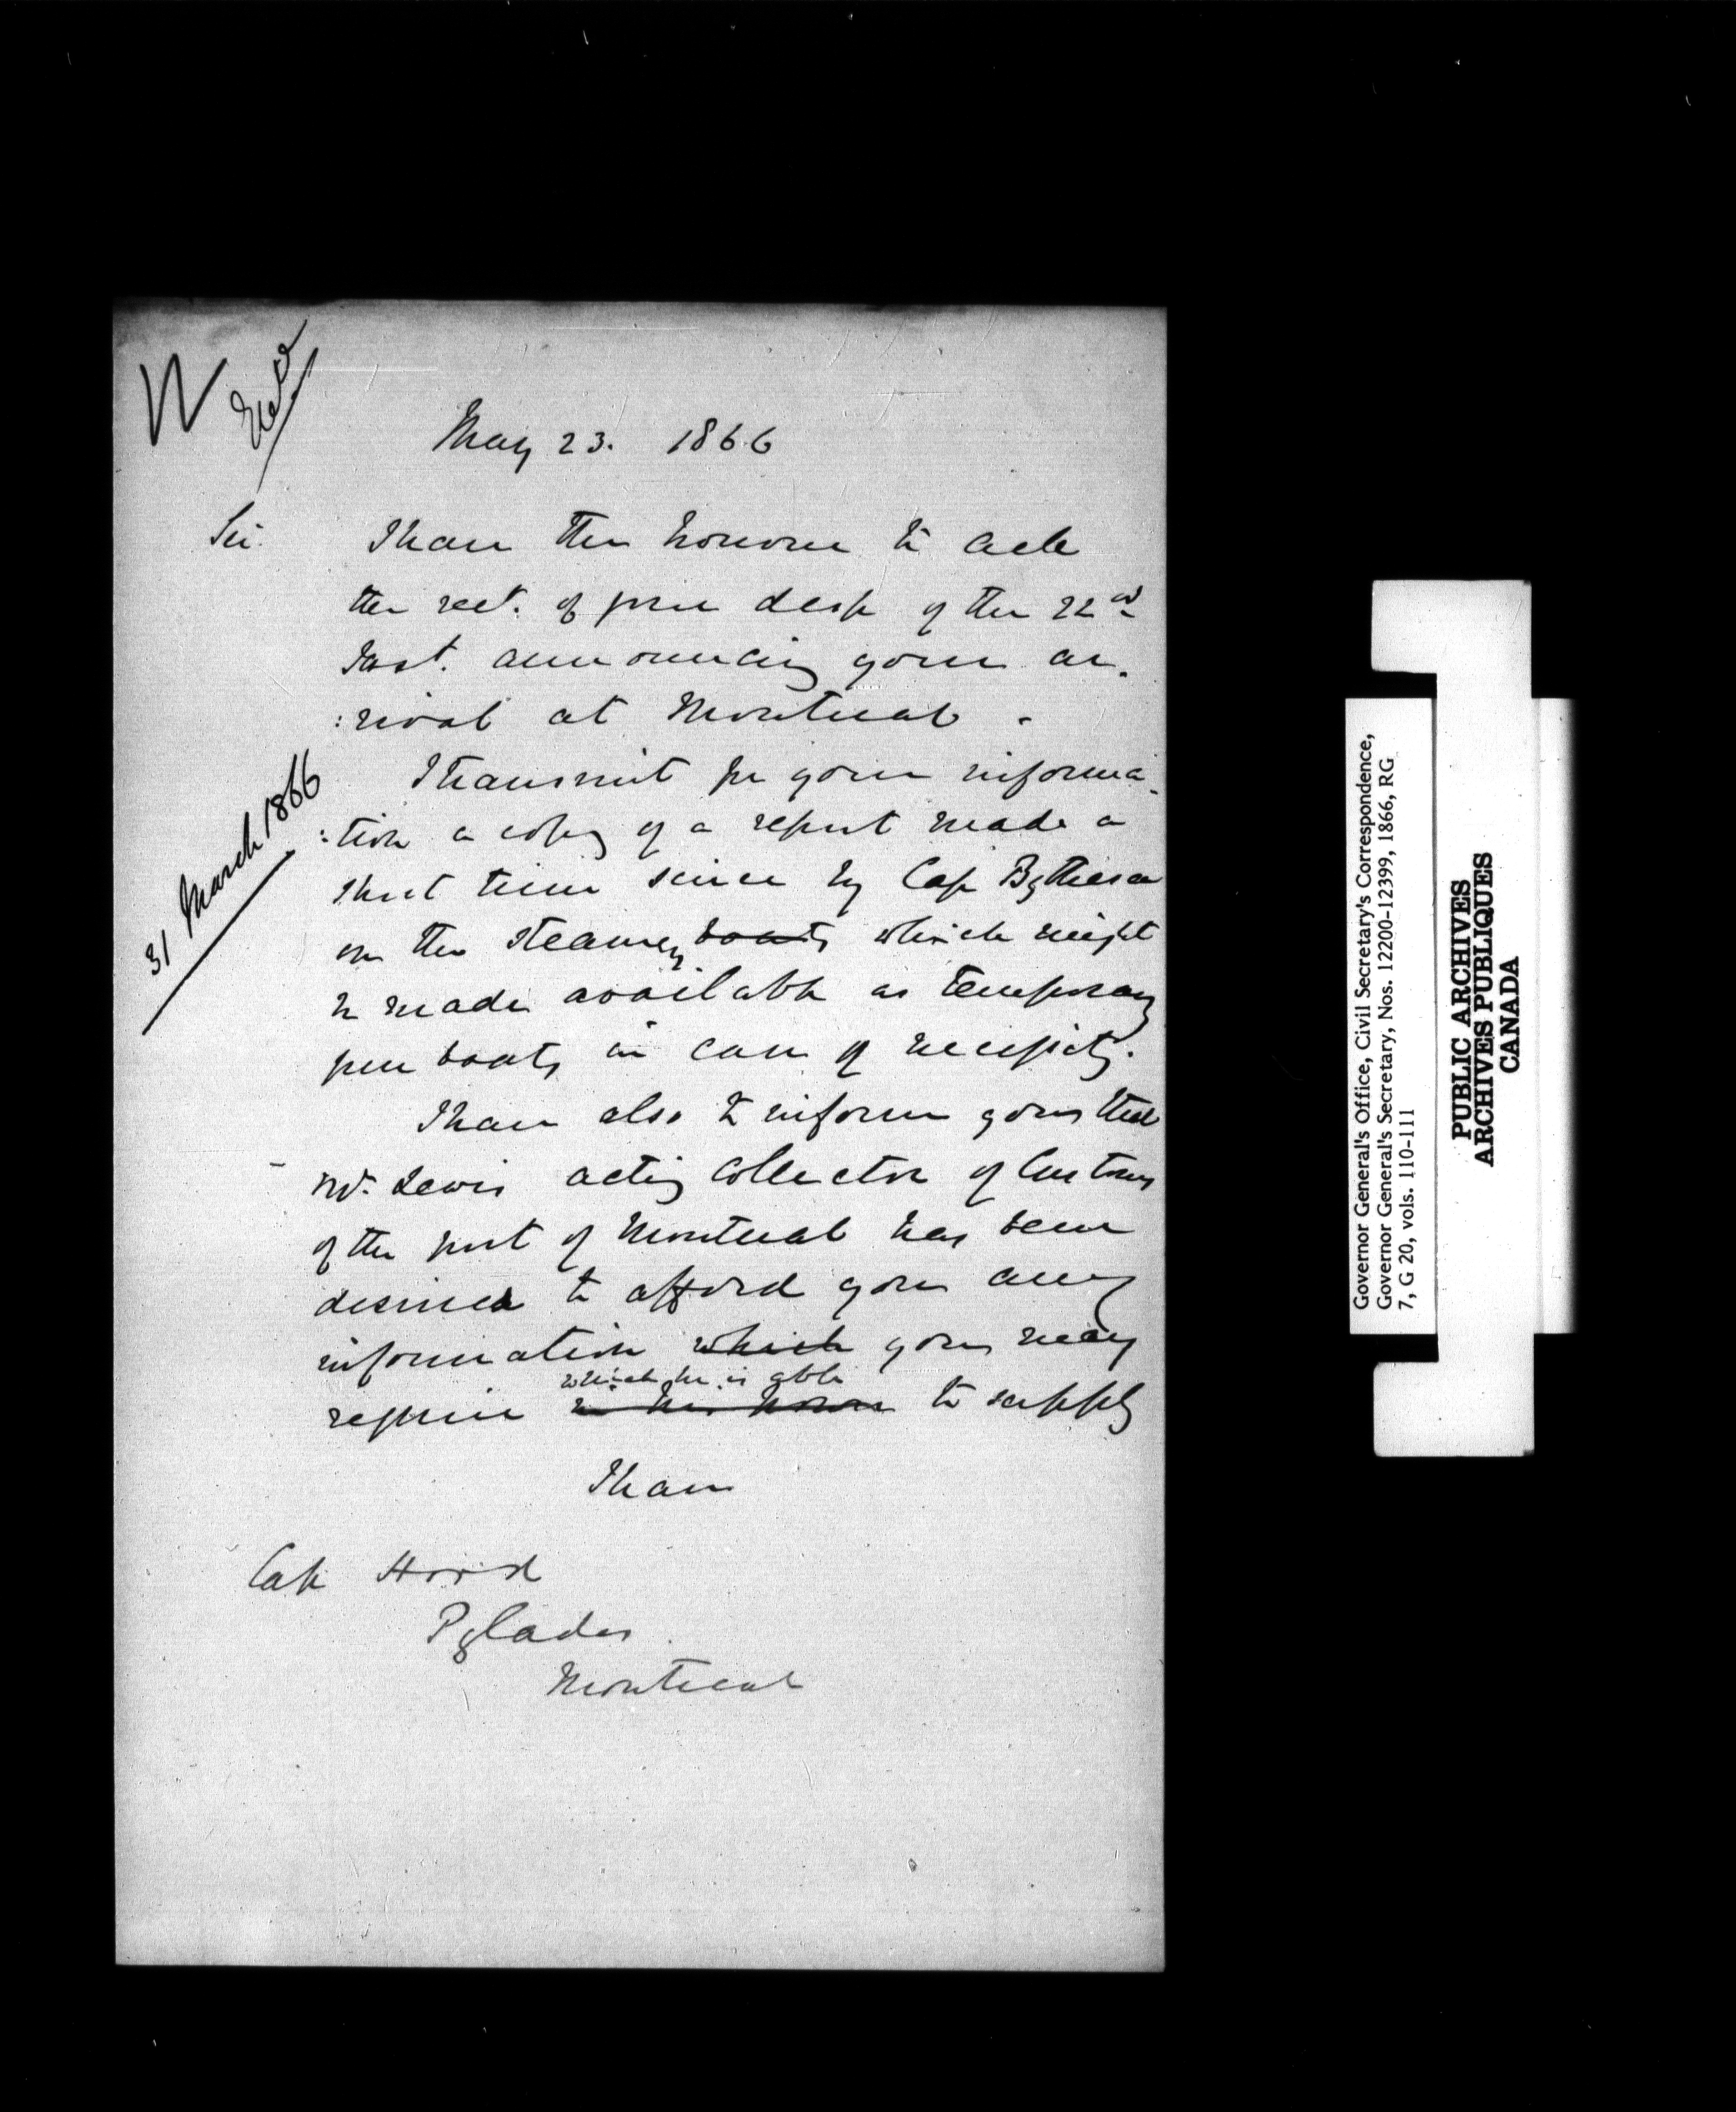 May 23. 1866
Sir. I have the honour to ack
the rect. of your desp of the 22nd
Inst. announcing your ar-
:rival at Montreal.
I transmit for your informa-
:tion a copy of a report made a
31 March 1866
short time since by Cap Bythesea
on the steamers boats which might
be made available as temporary
gun boats in case of necessity.
I have also to inform you that
Mr. Lewis acting Collector of Customs
of the port of Montreal has been
desired to afford you any
information which you may
which he is able
require to supply
I have
Cap Hood
Pylades
Montreal
Governor General's Office, Civil Secretary's Correspondence,
Governor General's Secretary, Nos. 12200-12399, 1866, RG
7, G 20, vols. 110-111
PUBLIC ARCHIVES
ARCHIVES PUBLIQUES
CANADA